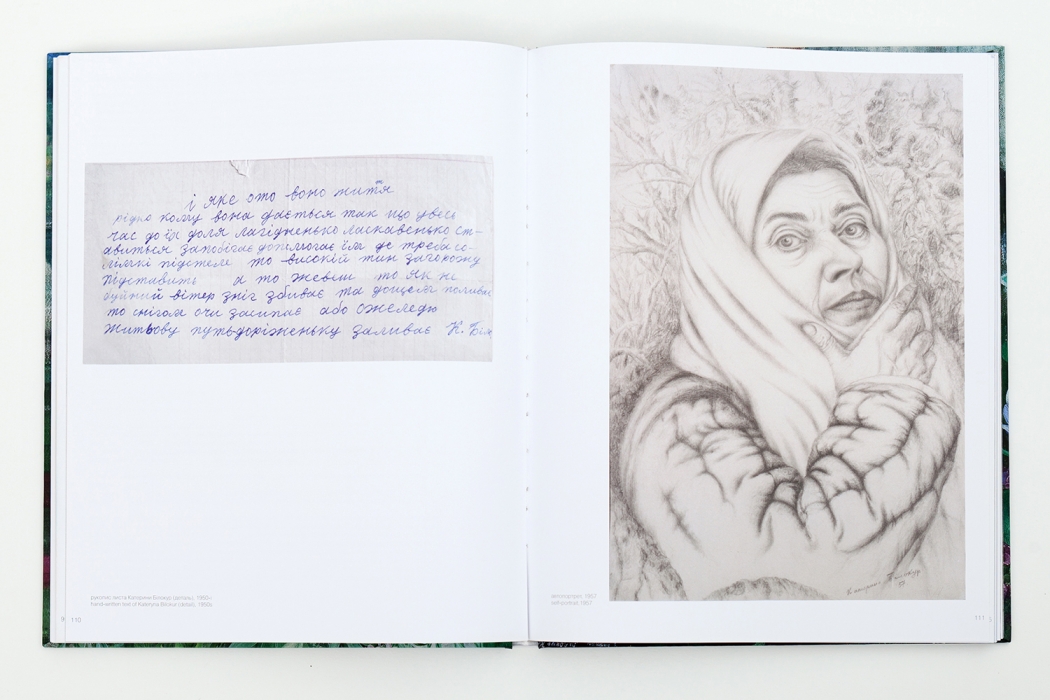 і яке ото воно життя
рідко кому вона дається так що увесь
час до їх доля лагідненько ласкавенько ст-
авиться запобігає допомогає їм де треба со-
ломкі підстеле то високій тин загорожу
підставить а то живеш то як не
буйний вітер зніг збиває та дощем полива
то снігом очи засипає або ожеледю
житьову путь-доріженьку заливає К. Біл
рукопис листа Катерини Білокур (деталь), 1950–і
hand-written text of Kateryna Bilokur (detail), 1950s
110
автопортрет, 1957
self-portrait, 1957
111
Катерина Білокур
57